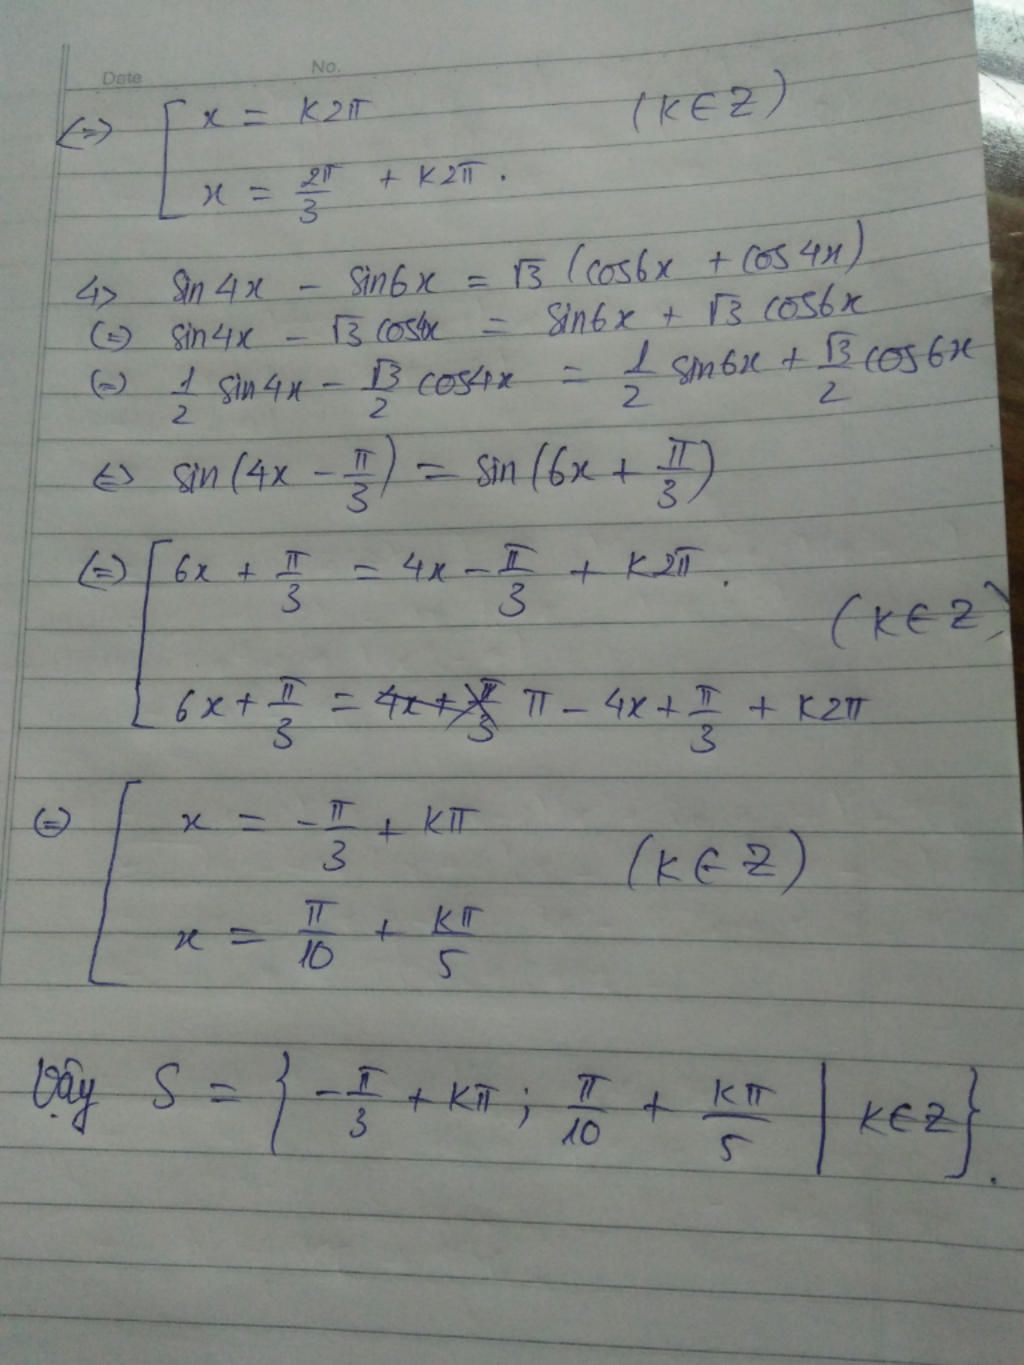 Date No.
(=) [ x = k2π (k∈Z)
x = 2π/3 + k2π.
4> sin4x - sin6x = √3 (cos6x + cos4x)
(=) sin4x - √3 cos4x = sin6x + √3 cos6x
(=) 1/2 sin4x - √3/2 cos4x = 1/2 sin6x + √3/2 cos6x
<=> sin(4x - π/3) = sin(6x + π/3)
(=) [ 6x + π/3 = 4x - π/3 + k2π.
(k∈Z)
6x + π/3 = 4x + π/3 π - 4x + π/3 + k2π
(=) [ x = -π/3 + kπ
(k∈Z)
x = π/10 + kπ/5
Vậy S = { -π/3 + kπ ; π/10 + kπ/5 | k∈Z}.